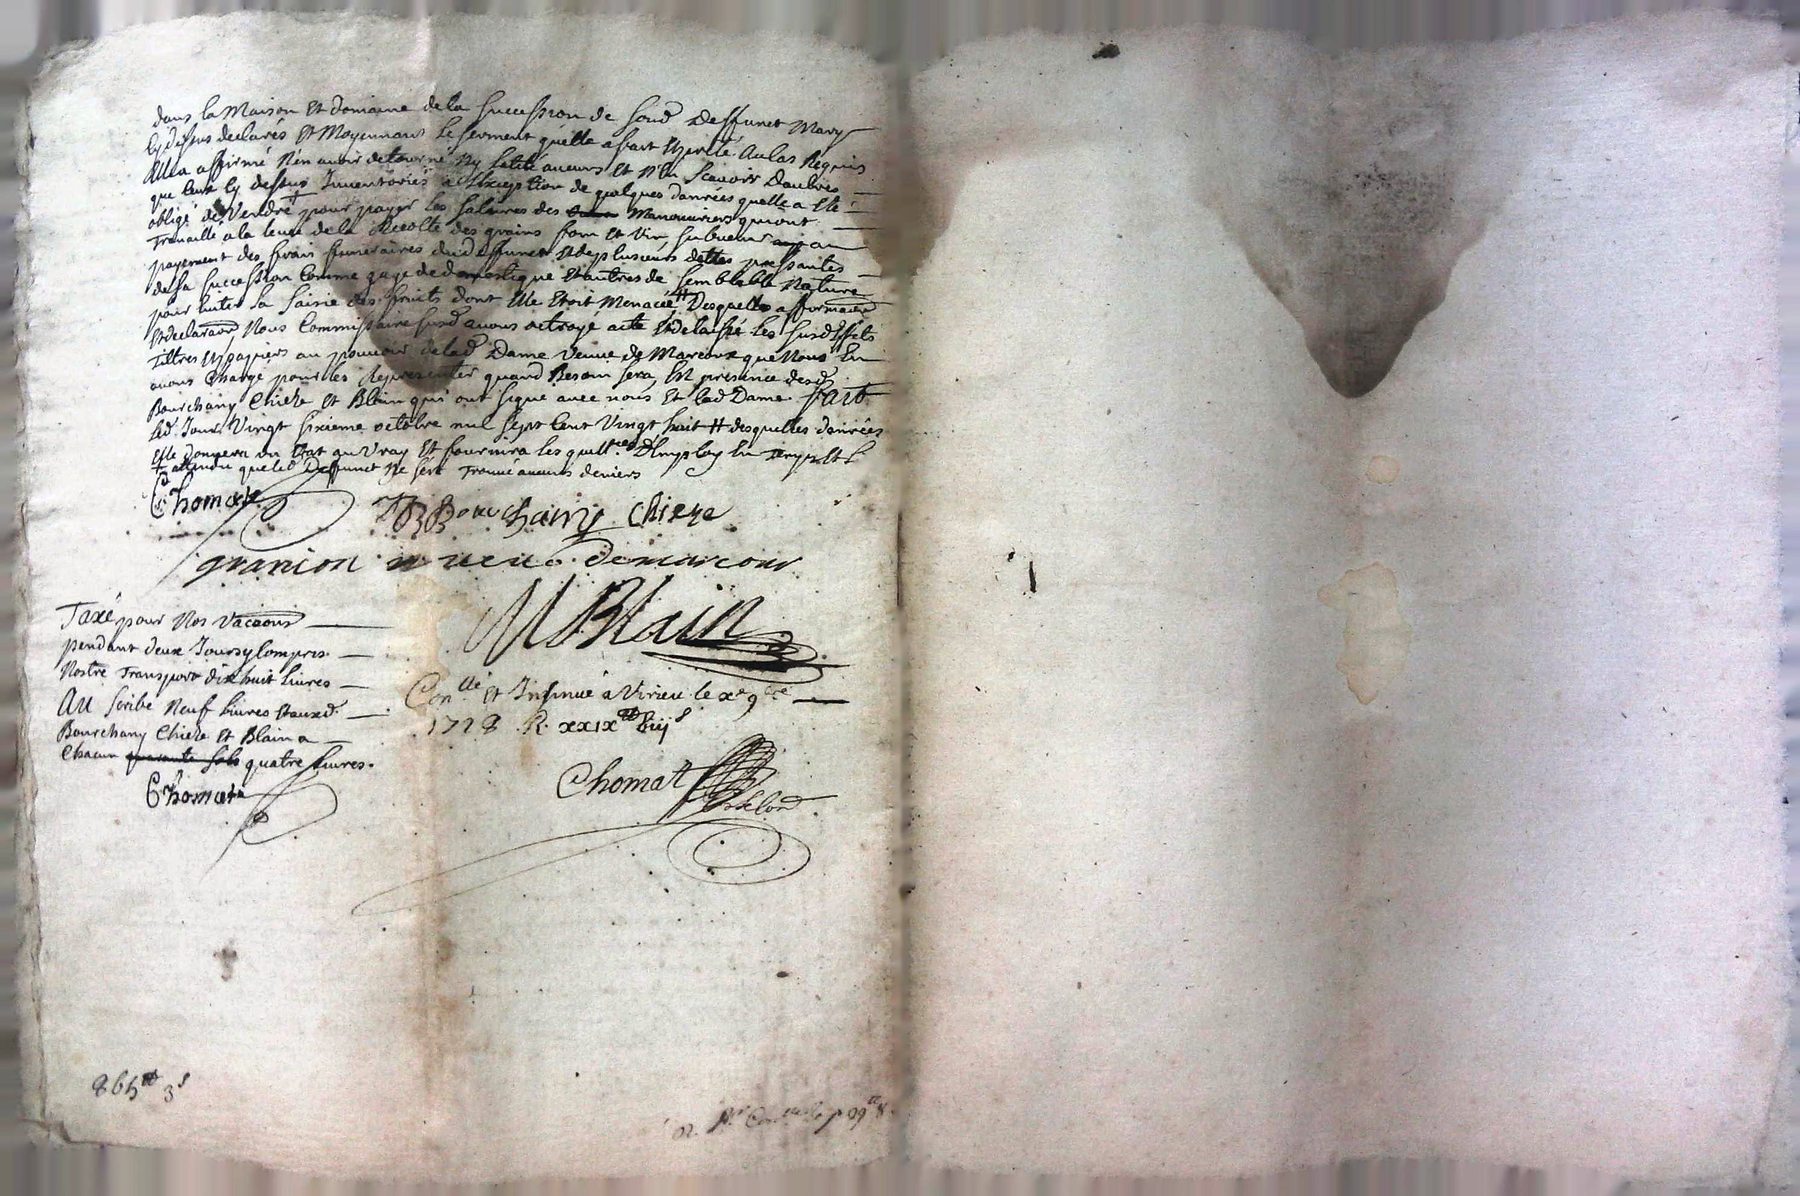 dans la Maison Et domaine de la succession de sond. Deffunct Mary
Cy dessus declarés Et Moyennant Le serment quelle a fait Et preté Au Cas Requis
Ella affirmé N'en avoir detourné Ny Latité aucuns Et N'en scavoir Dautres
que Ceux Cy dessus Inventoriés a L'Exeption de quelques danrées quelle a Eté
obligé de Vendre + pour payer Les salaires des Manouuriers qui ont
Travaillé a la Leuée de la Recolte des grains foin Et Vin au
payement des frais funeraires dud. deffunct Et de plusieurs dettes pressantes
de sa succession Comme gage de domestique Et autres de semblable Nature
pour Euiter La saisie des fruits dont Elle Etoit Menacée # Desquelles affirmaon
Et declaraon Nous Commissaire susd. auons octroyé acte Et delaissé Les susd. Effets
Tiltres Et papiers au pouuoir de lad. Dame Veuue de Marcoux que Nous En
auons Chargé pour les Representer quand Besoin sera, En presence desd.
Bourchany Chieze Et Blain qui ont signé auec nous Et lad. Dame. fait
Led. Jour Vingt sixieme octobre mil sept Cent Vingt huit # desquelles danrées
Elle donnera un Etat au Vray Et fournira les quitt.ces D'Employ En Temps Et L
+ attendu que led. Deffunct Ne sest Trouué aucuns deniers
Chomat
Bourchany Chieze
granion veue demarcour
M Blain
Taxé pour Nos Vacaons
pendant deux Jours y Compris
Nostre Transport dix huit Liures
Au scribe Neuf Liures Et auxd.
Bourchany Chieze Et Blain a
Chacun quarante sols quatre Liures.
Chomat
Con.llé Et Insinué a Virieu le xe 9bre
1728 R. xxix lt
Chomat
865 lt 3 s